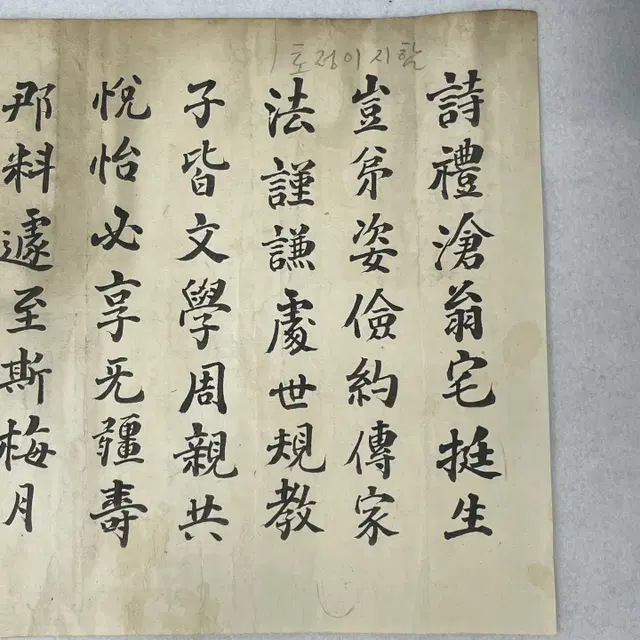 호정이지할
詩禮滄翁宅挺生
豈弟姿儉約傳家
法謹謙處世規教
子皆文學周親共
悅怡必享无疆壽
那料遽至斯梅月